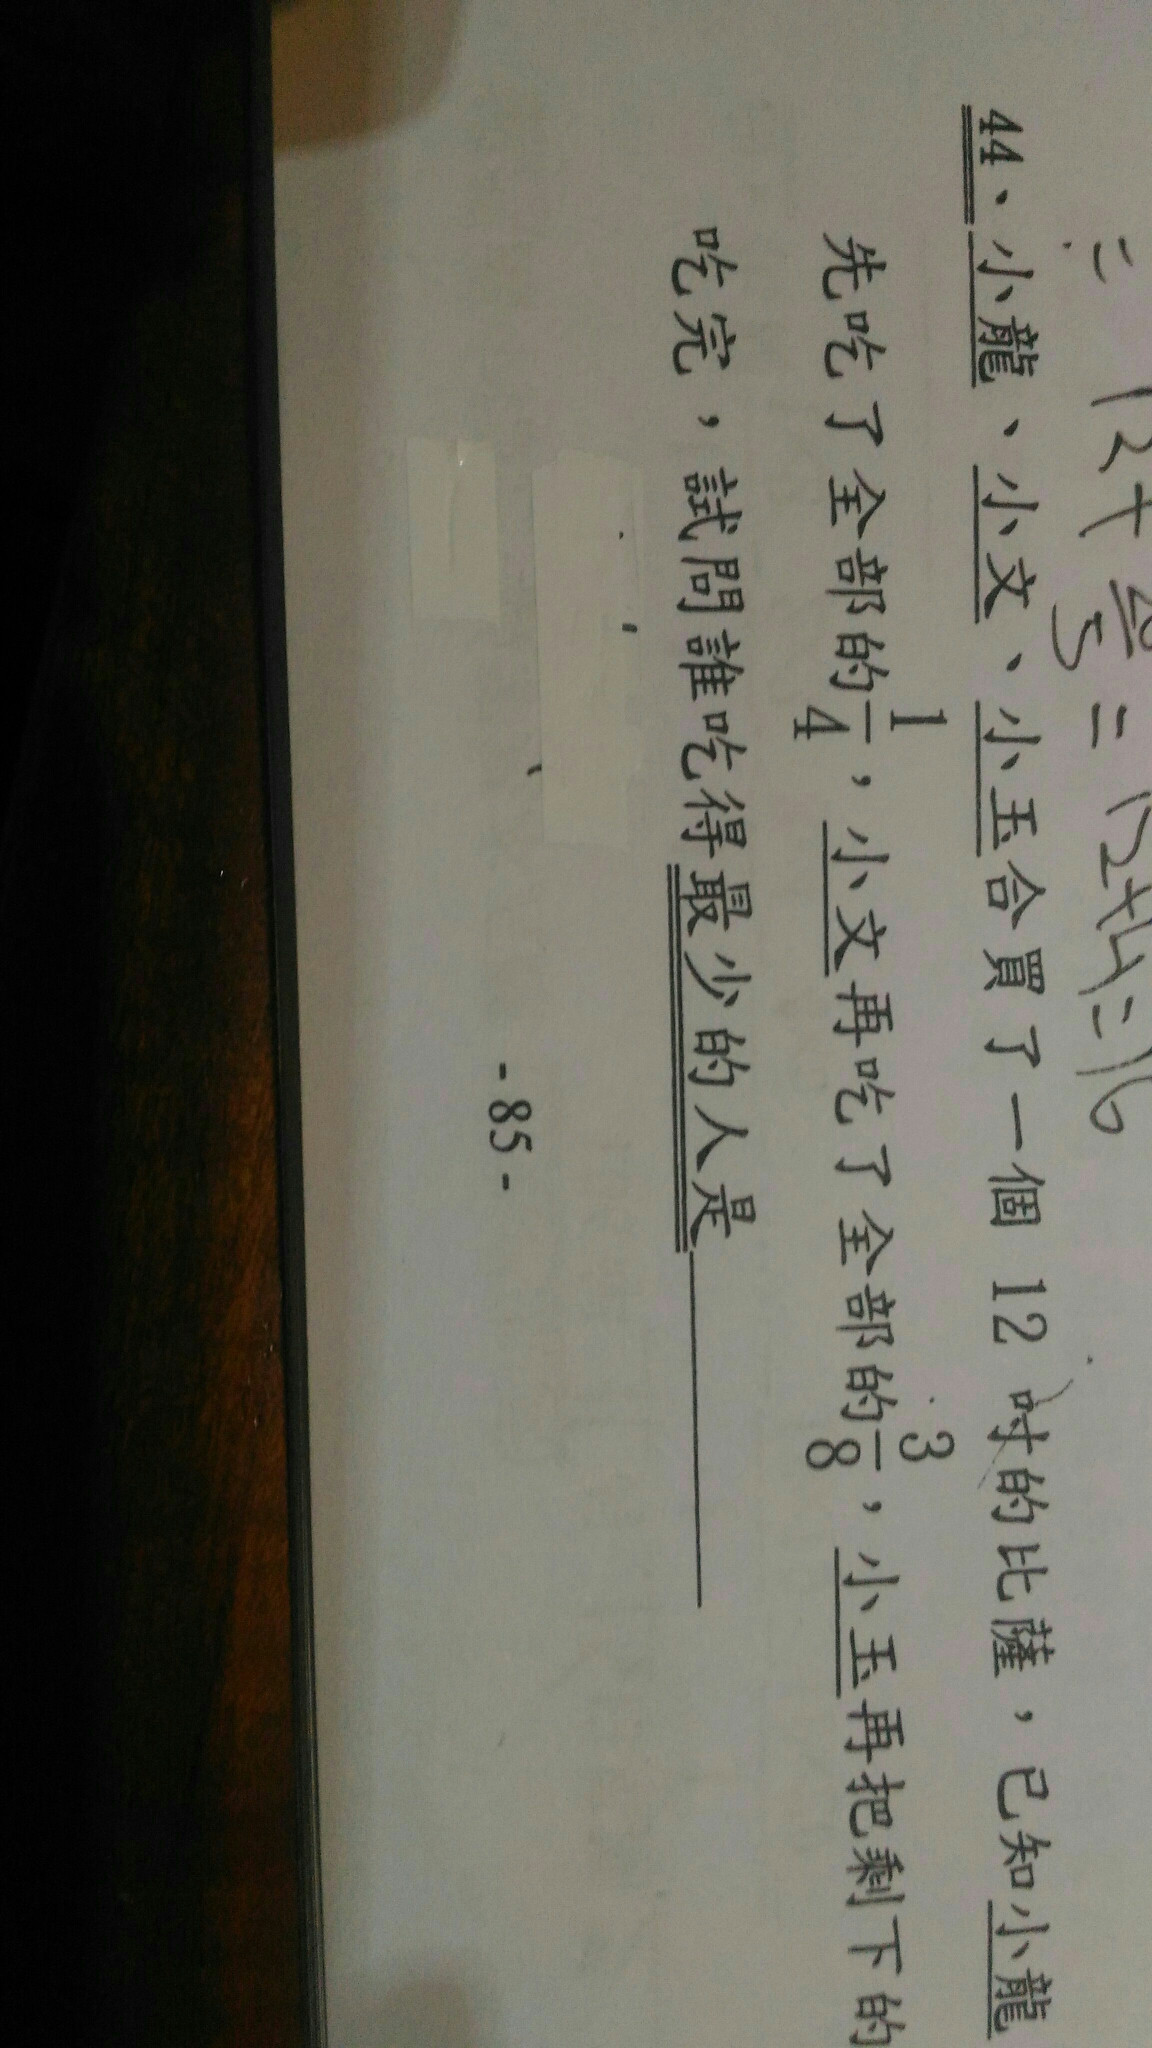 = 12+20/5 = 12+4=16
44、小龍、小文、小玉合買了一個 12 吋的比薩，已知小龍
先吃了全部的1/4，小文再吃了全部的3/8，小玉再把剩下的
吃完，試問誰吃得最少的人是
-85-